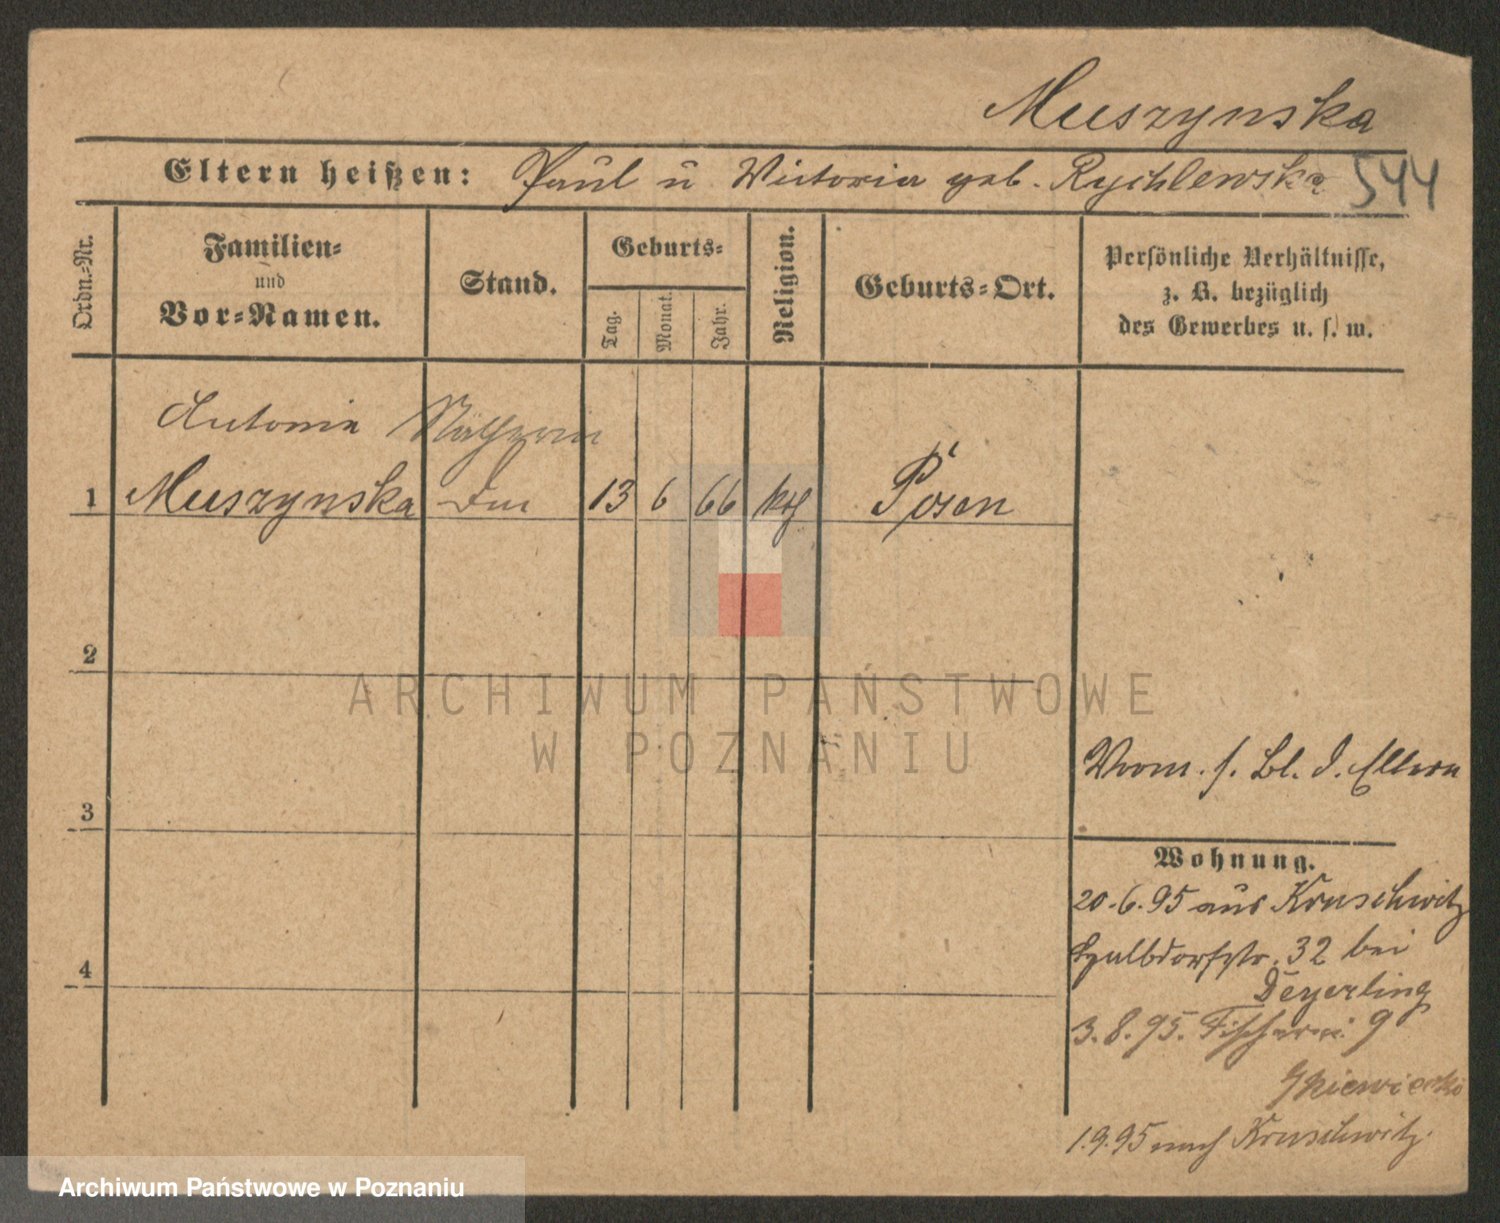 Muszynska
Eltern heißen: Paul u Victoria geb. Rychlewska 544
Ordn.=Nr.
Familien=
und
Vor=Namen.
Stand.
Geburts=
Tag.
Monat.
Jahr.
Religion.
Geburts=Ort.
Persönliche Verhältnisse,
z. B. bezüglich
des Gewerbes u. s. w.
Antonia Näherin
1 Muszynska 13 6 66 kth Posen
2
ARCHIWUM PAŃSTWOWE
W POZNANIU
Vorm. s. Bl. d. Eltern
3
Wohnung.
20.6.95 aus Kruschwitz
Halbdorfstr. 32 bei
Deyerling
4
3.8.95. Fischerei 9
1.9.95 nach Kruschwitz.
Archiwum Państwowe w Poznaniu